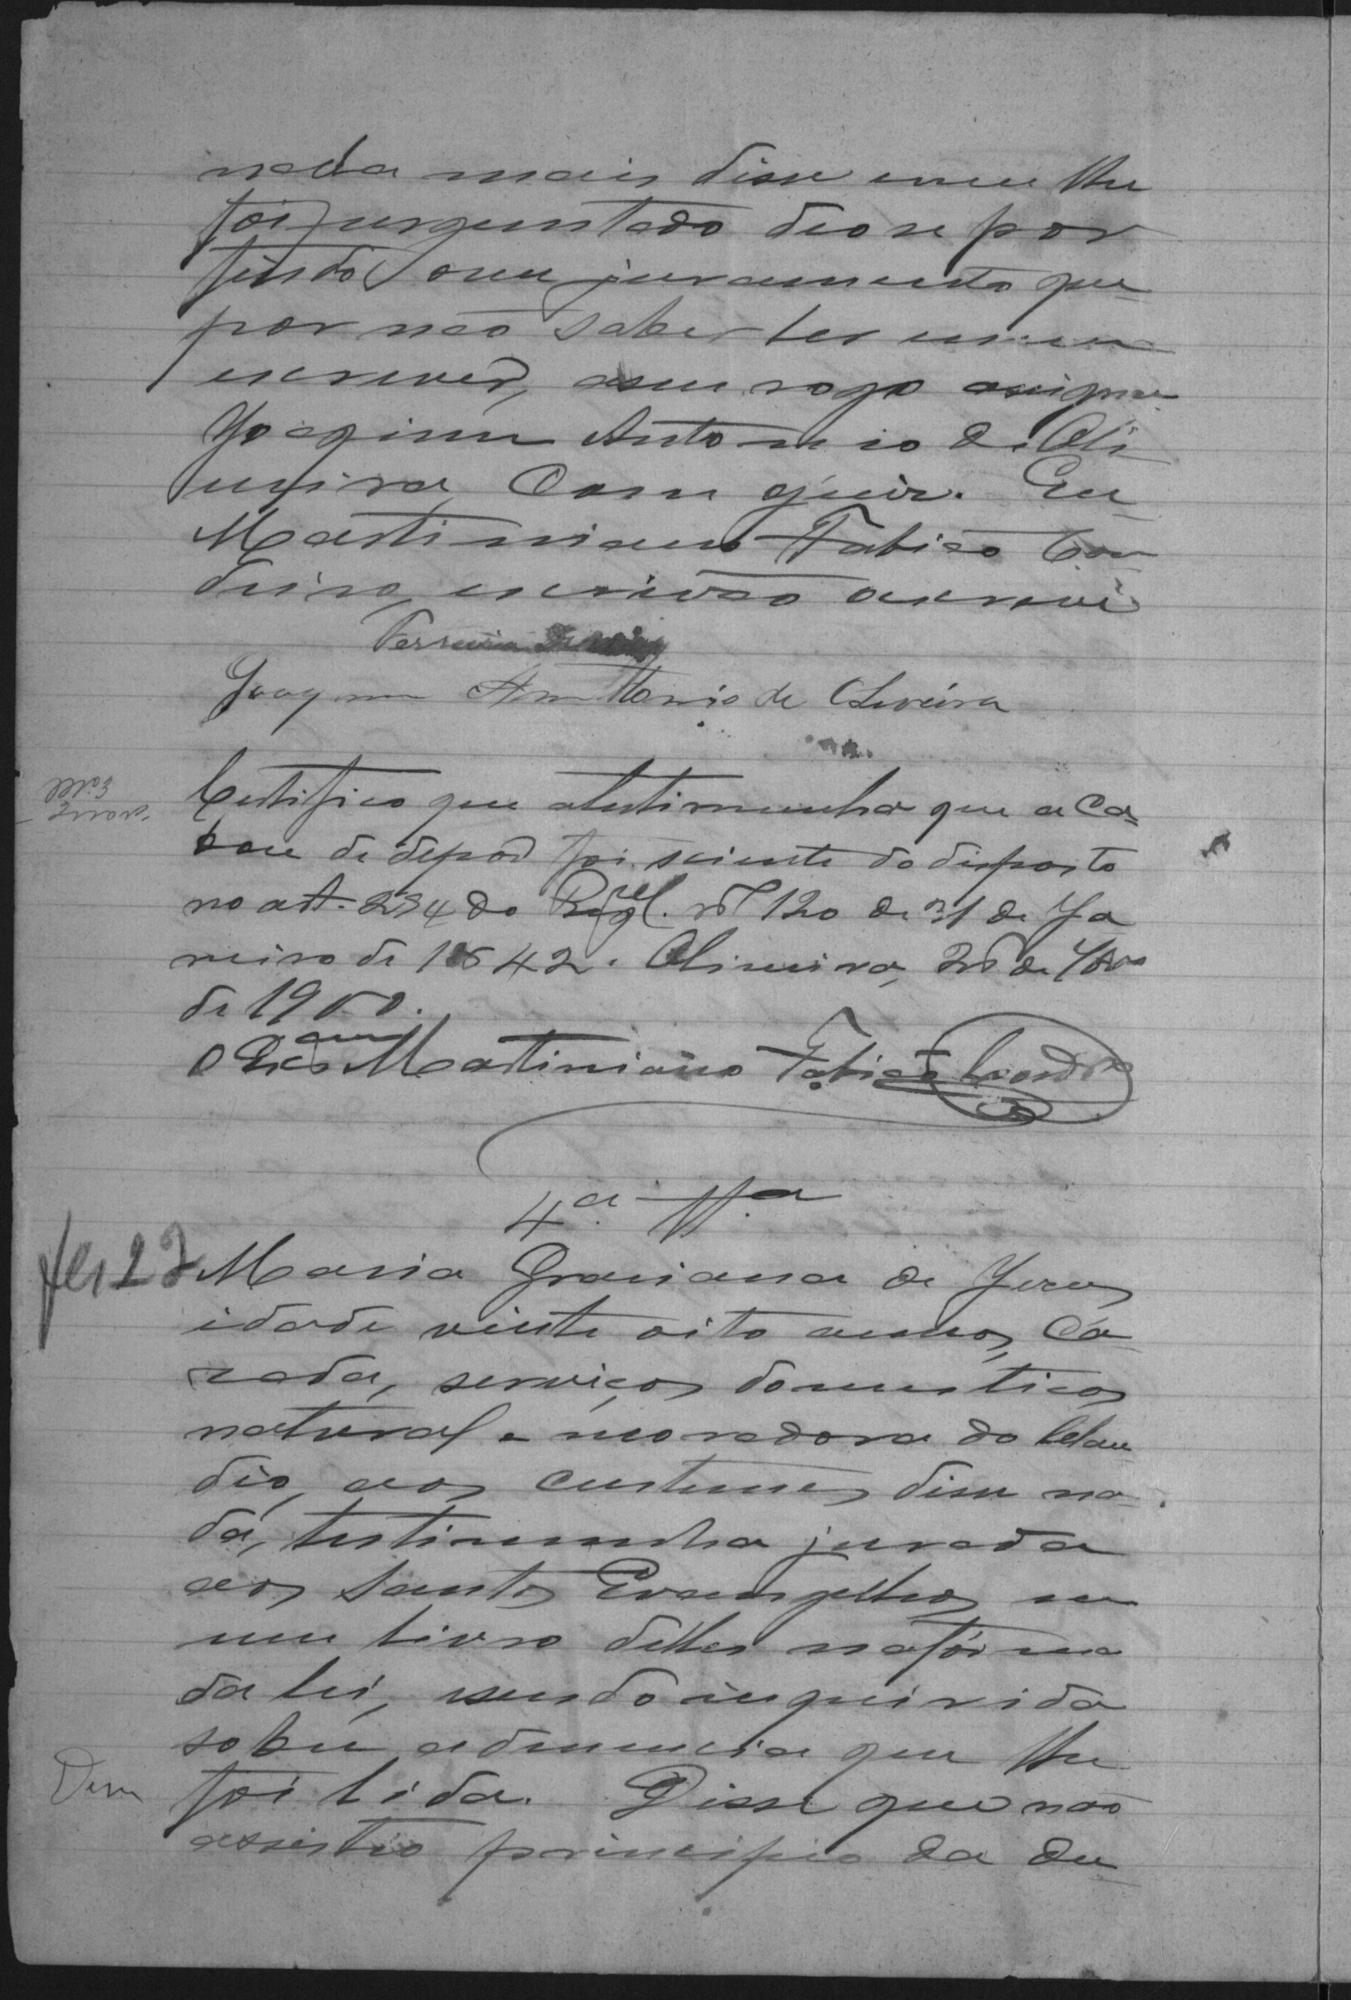 nada mais disse nem lhe
foi perguntado deo se por
findo o seu juramento que
por não saber ler nem
escrever, a seu rogo assigna
Joaquim Antonio de Oli
veira, com o juiz. Eu
Martiniano Fabião Cor
deiro, escrivão o escrevi
Ferreira
Joaquim Anttonio de Oliveira
Certifico que a testimunha que aca=
bou de depor foi sciente do disposto
no art. 294 do Regl. nº 120 de 31 de Ja
neiro de 1842. Oliveira, 28 de
de 1900.
O Escam Martiniano Fabião Cordro
4ª Ttª
fls 27 Maria Graciana de Jesus
idade vinte oito annos, ca
zada, serviços domesticos
natural e moradora do Clau
dio, aos custumes disse na
da, testimunha jurada
aos Santos Evangelhos em
um livro delles na fórma
da lei, e sendo inquirida
sobre a denuncia que lhe
foi lida. Disse que não
assistio principio da de